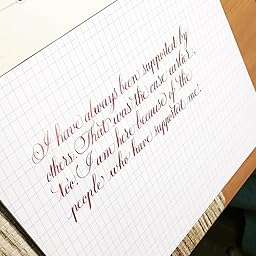 I have always been supported by
others. That was the case earlier,
too! I am here because of the
people who have supported me!